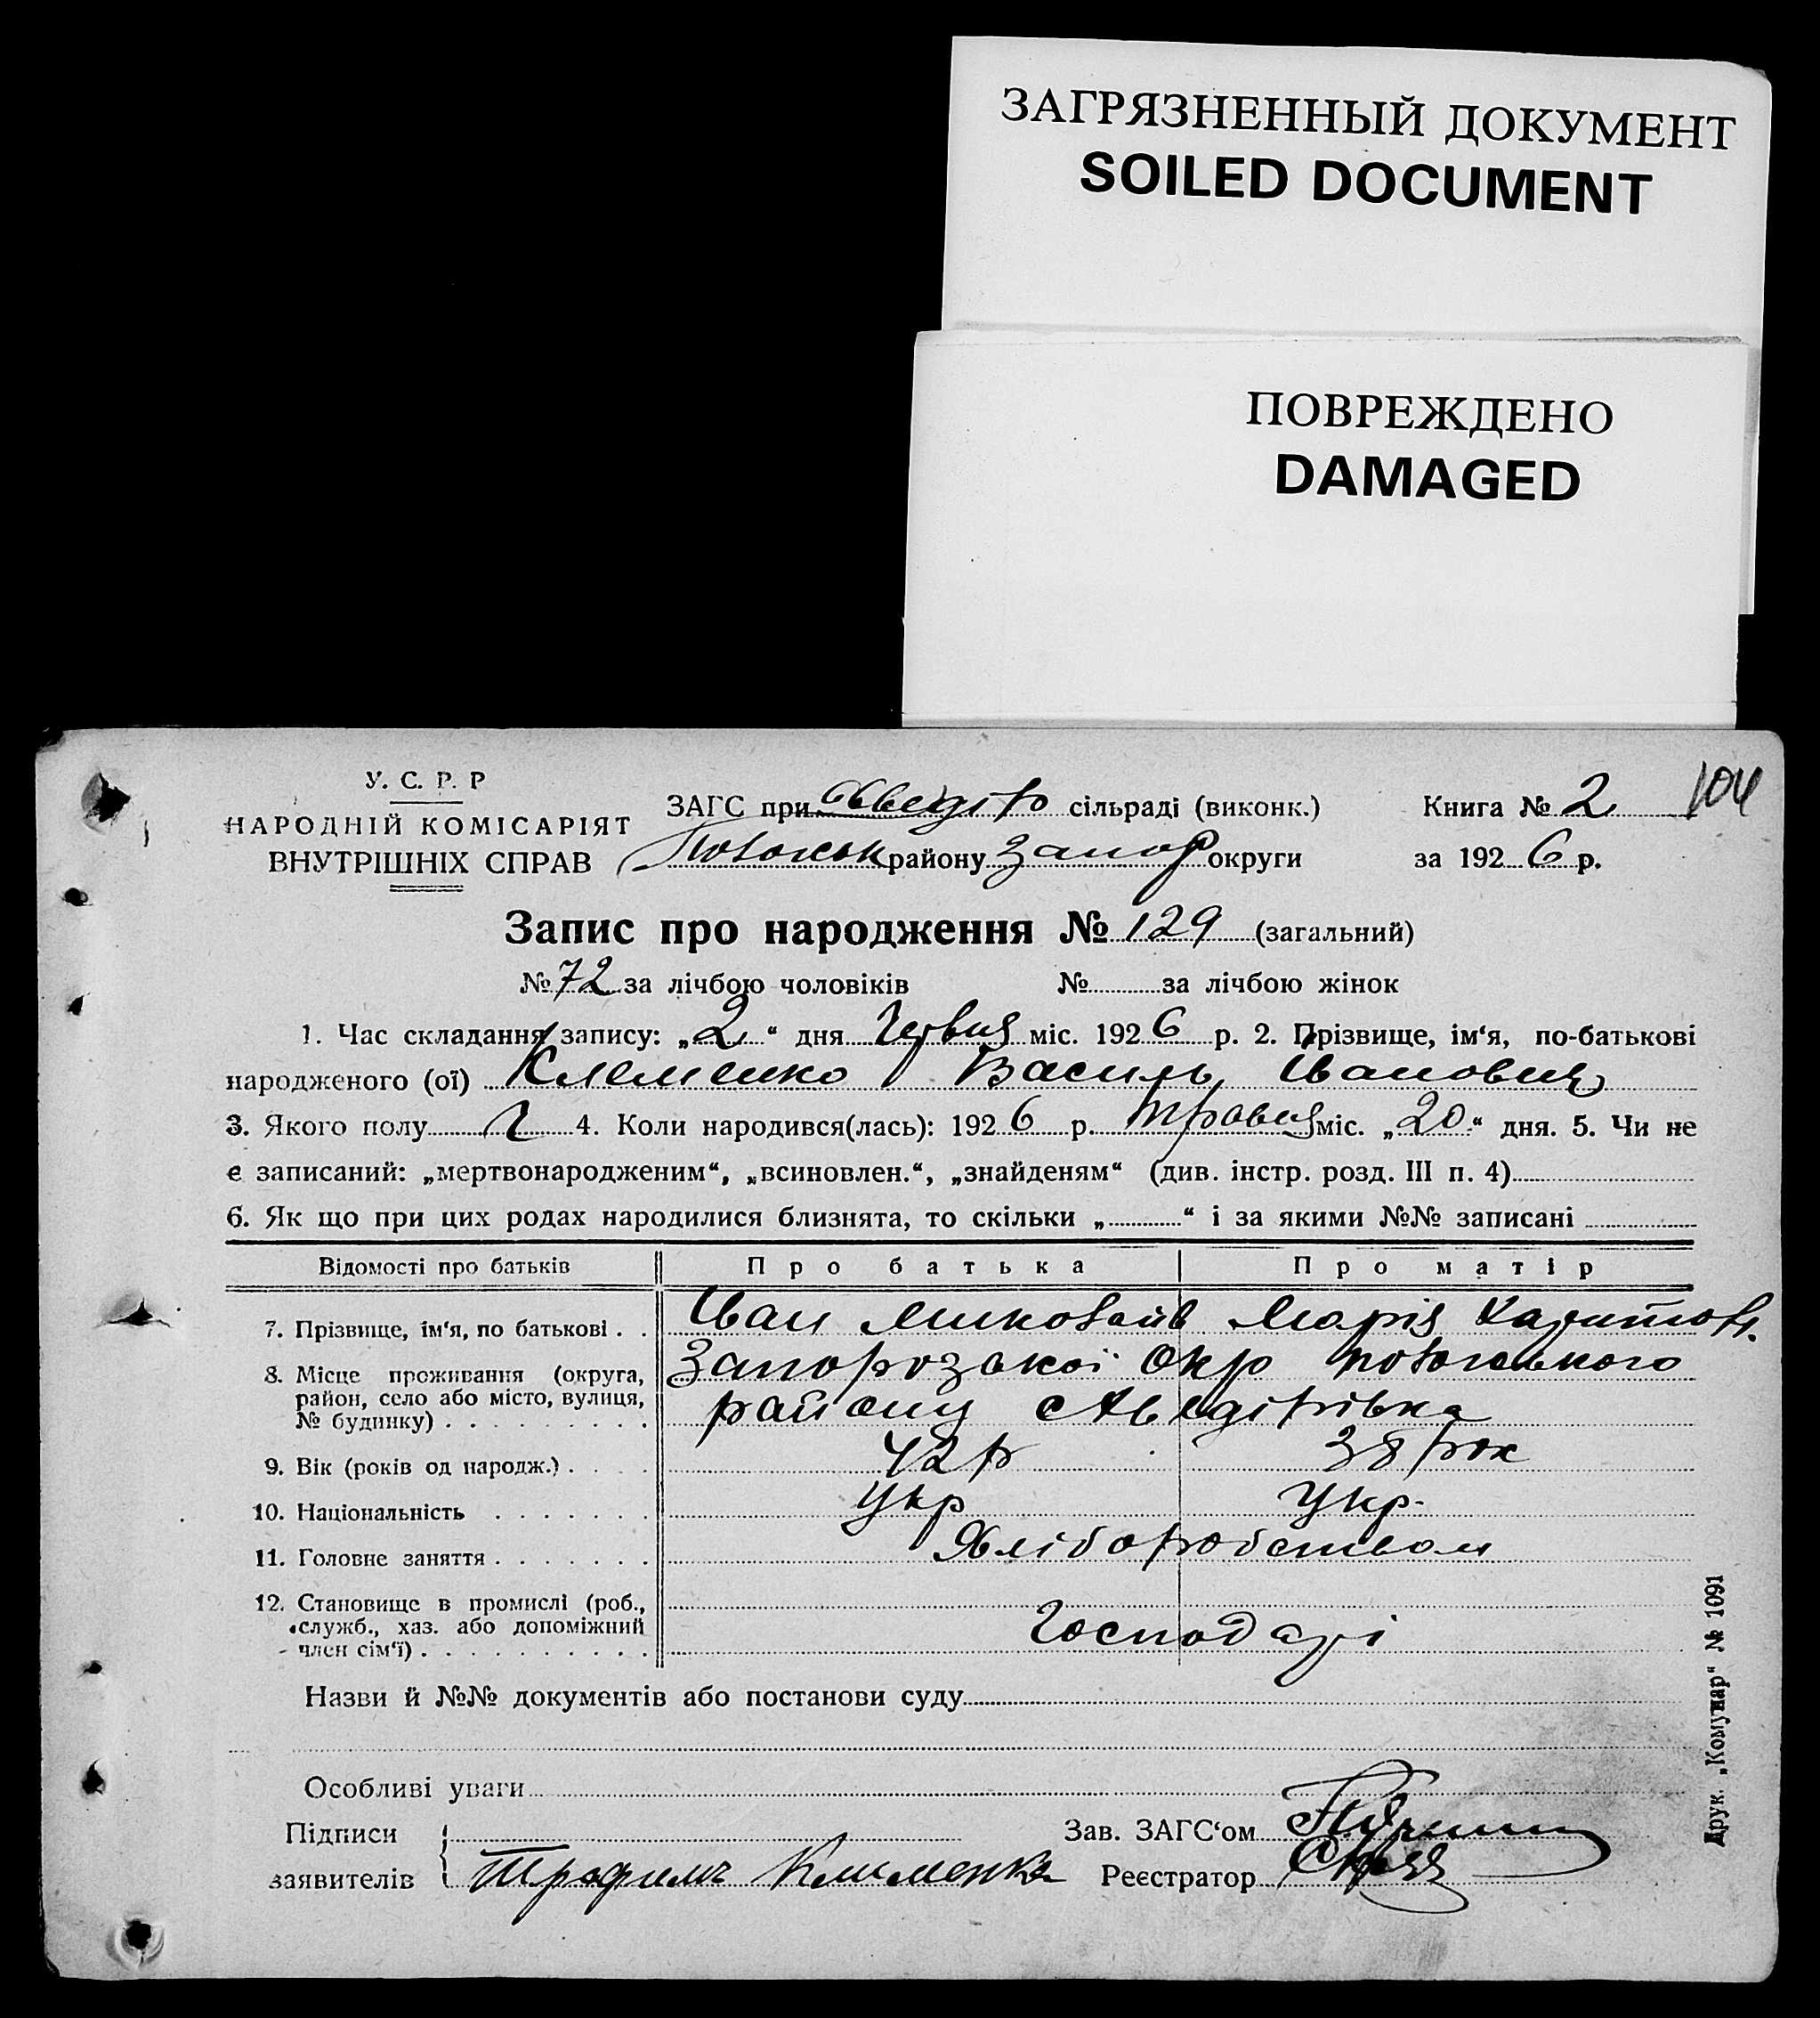 ЗАГРЯЗНЕННЫЙ ДОКУМЕНТ
SOILED DOCUMENT
ПОВРЕЖДЕНО
DAMAGED
104
У. С. Р. Р
НАРОДНІЙ КОМІСАРІЯТ
ВНУТРІШНІХ СПРАВ
ЗАГС при сільраді (виконк.) Книга № 2
району Запор округи за 1926 р.
Запис про народження № 129 (загальний)
№ 72 за лічбою чоловіків № за лічбою жінок
1. Час складання запису: „2“ дня Червня міс. 1926 р. 2. Прізвище, ім‘я, по-батькові
народженого (ої) Клеменко Василь Іванович
3. Якого полу Ч 4. Коли народився(лась): 1926 р. Травня міс. „20“ дня. 5. Чи не
є записаний: „мертвонародженим“, „всиновлен.“, „знайденям“ (див. інстр. розд. III п. 4)
6. Як що при цих родах народилися близнята, то скільки „ “ і за якими №№ записані
Відомості про батьків Про батька Про матір
7. Прізвище, ім‘я, по батькові . . Іван Миколаїв Марія Харитов.
8. Місце проживання (округа, Запорозької Окр Пологського
район, село або місто, вулиця, району
№ будинку) . . . . . . . . .
9. Вік (років од народж.) . . . . 42 р 38 рок
10. Національність . . . . . . . Укр Укр.
11. Головне заняття . . . . . . . Хліборобством
12. Становище в промислі (роб.,
служб., хаз. або допоміжний Господарі
член сім‘ї) . . . . . . . . . .
Назви й №№ документів або постанови суду
Особливі уваги
Підписи Зав. ЗАГС‘ом
заявителів Трофимъ Клименко Реєстратор
Друк. „Комунар“ № 1091